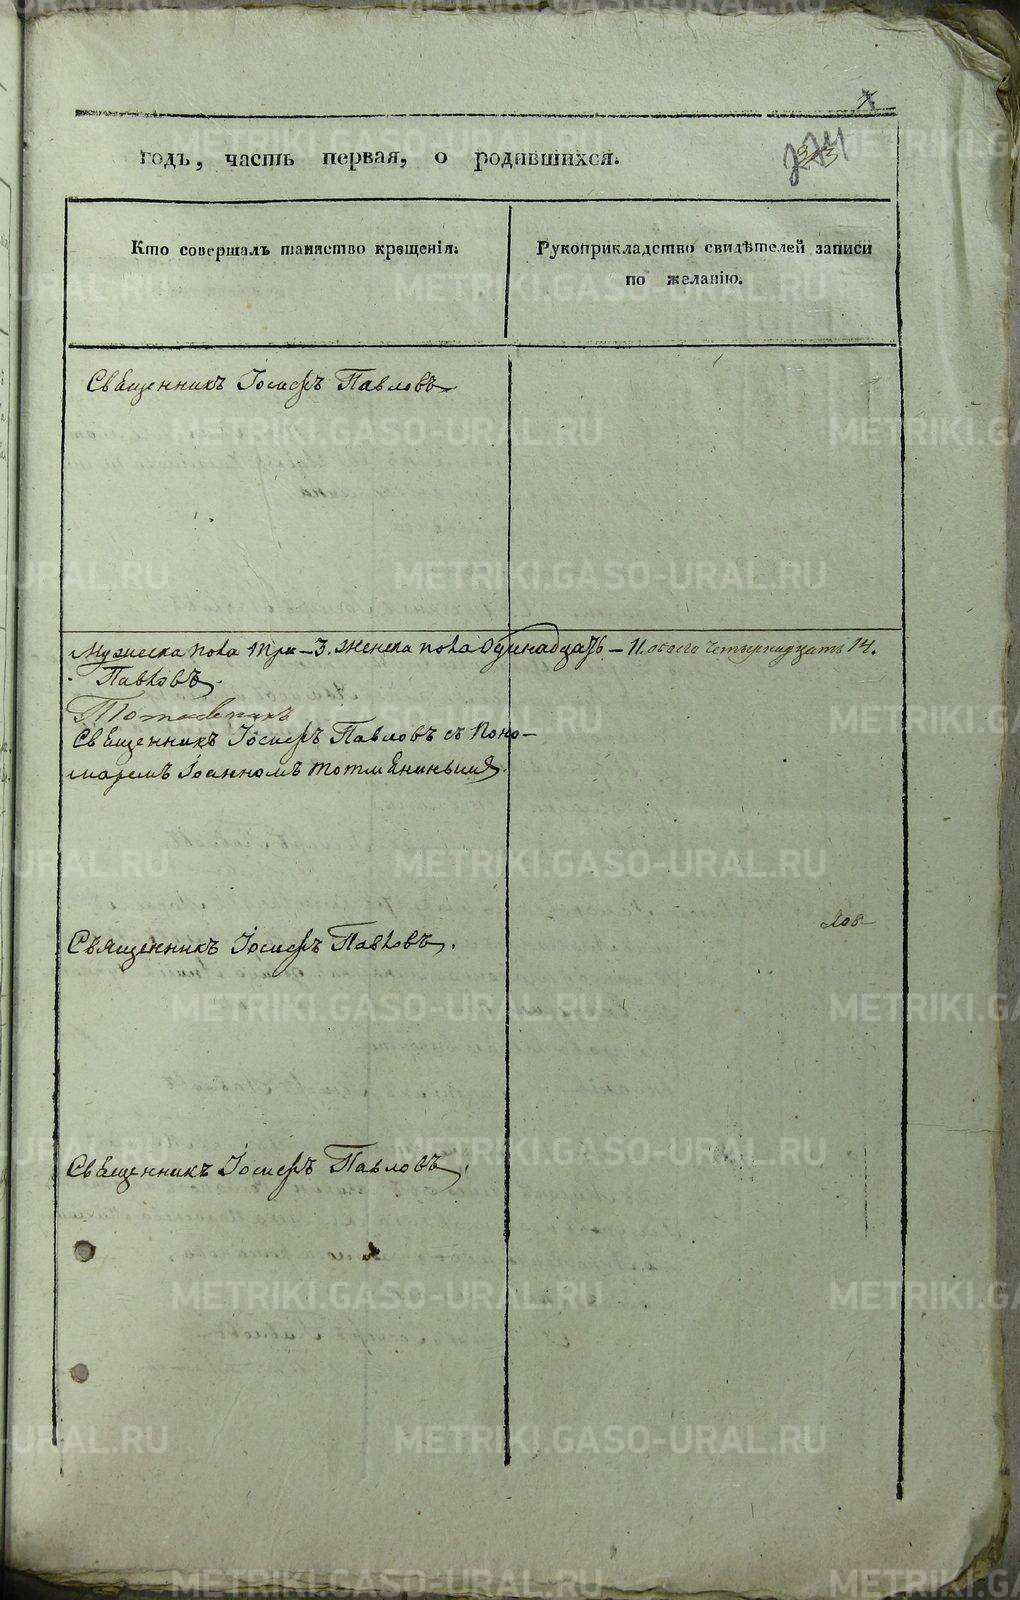 7.
274
годъ, часть первая, о родившихся.
Кто совершалъ таинство крещенія.
Рукоприкладство свидѣтелей записи
по желанію.
Священникъ Іосифъ Павловъ
Мужеска пола три – 3. женска пола одинадцать – 11. обоего четырнадцать 14.
Павловъ.
Священникъ Іосифъ Павловъ съ Поно-
маремъ Іоанномъ
Священникъ Іосифъ Павловъ.
лов
Священникъ Іосифъ Павловъ.
METRIKI.GASO-URAL.RU